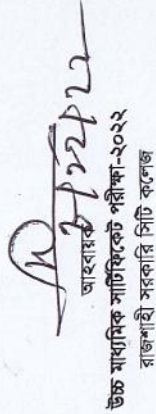 আহবায়ক
উচ্চ মাধ্যমিক সার্টিফিকেট পরীক্ষা-২০২২
রাজশাহী সরকারি সিটি কলেজ